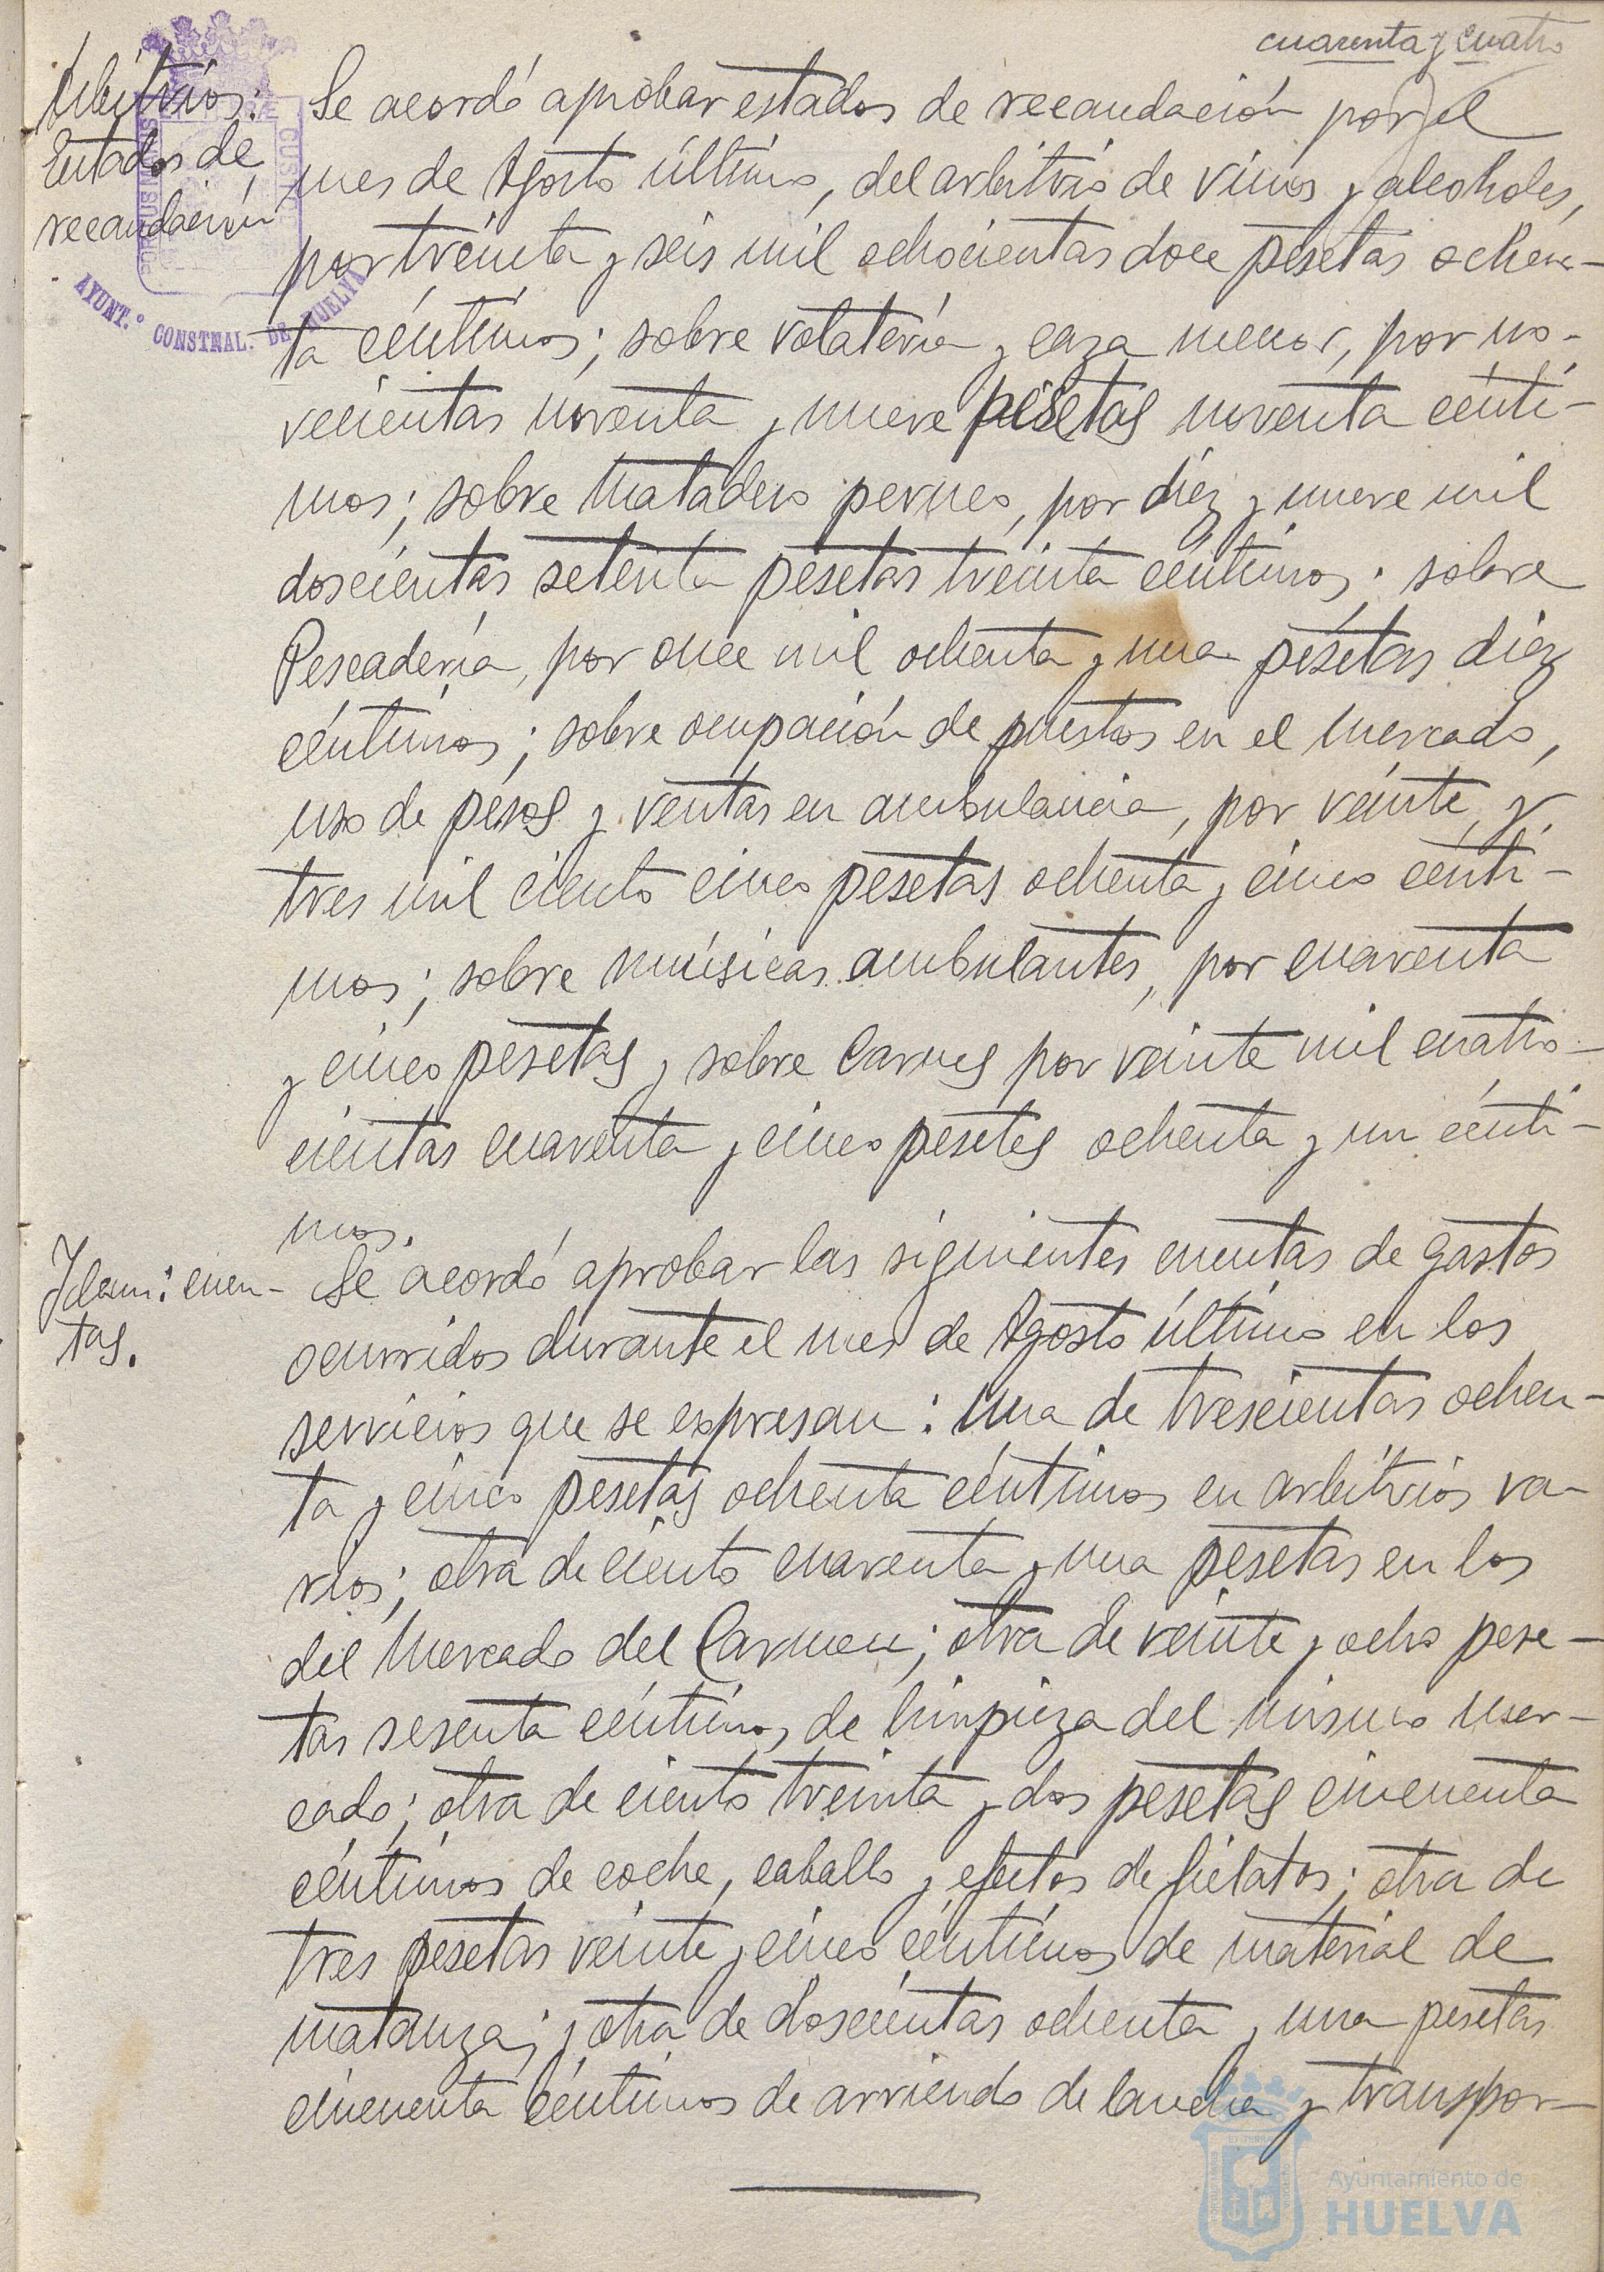 cuarenta y cuatro
Arbitrios:
Estados de
recaudación
Se acordó aprobar estados de recaudación por el
mes de Agosto último, del arbitrio de vinos y alcoholes,
por treinta y seis mil ochocientas doce pesetas ochen-
ta céntimos; sobre volatería y caza menor, por no-
vecientas noventa y nueve pesetas noventa cénti-
mos; sobre Matadero perneo, por diez y nueve mil
doscientas setenta pesetas treinta céntimos; sobre
Pescadería, por once mil ochenta y una pesetas diez
céntimos; sobre ocupación de puestos en el Mercado,
uso de pesos y ventas en ambulancia, por veinte y
tres mil ciento cinco pesetas ochenta y cinco cénti-
mos; sobre músicas ambulantes, por cuarenta
y cinco pesetas y sobre Carnes por veinte mil cuatro-
cientas cuarenta y cinco pesetas ochenta y un cénti-
mos.
Idem: cuen-
tas.
Se acordó aprobar las siguientes cuentas de gastos
ocurridos durante el mes de Agosto último en los
servicios que se expresan: Una de trescientas ochen-
ta y cinco pesetas ochenta céntimos en arbitrios va-
rios; otra de ciento cuarenta y una pesetas en los
del Mercado del Carmen; otra de veinte y ocho pese-
tas sesenta céntimos de limpieza del mismo Mer-
cado; otra de ciento treinta y dos pesetas cincuenta
céntimos de coche, caballo y efectos de fielatos; otra de
tres pesetas veinte y cinco céntimos de material de
matanza; y otra de doscientas ochenta y una pesetas
cincuenta céntimos de arriendo de lancha y transpor-
AYUNT.º CONSTNAL. DE HUELVA
Ayuntamiento de
HUELVA